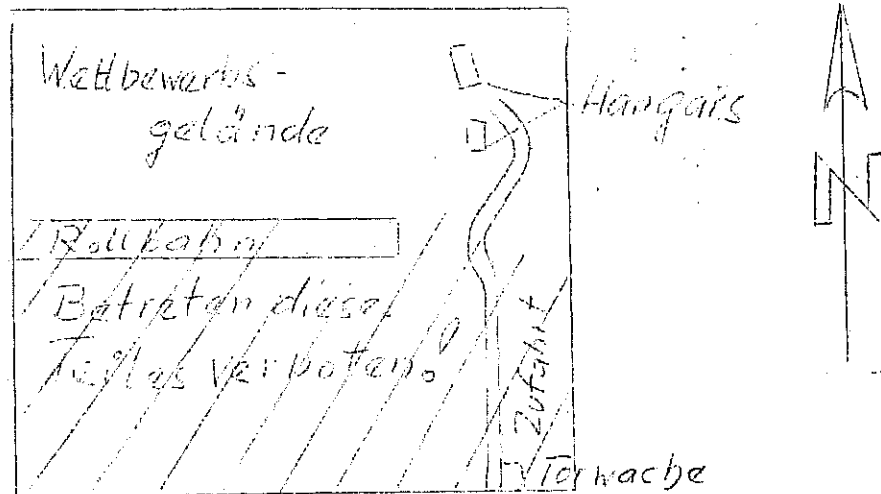 Wettbewerbs-
gelände
Hangars
N
Rollbahn
Betreten dieses
Teiles verboten!
Zufahrt
Torwache